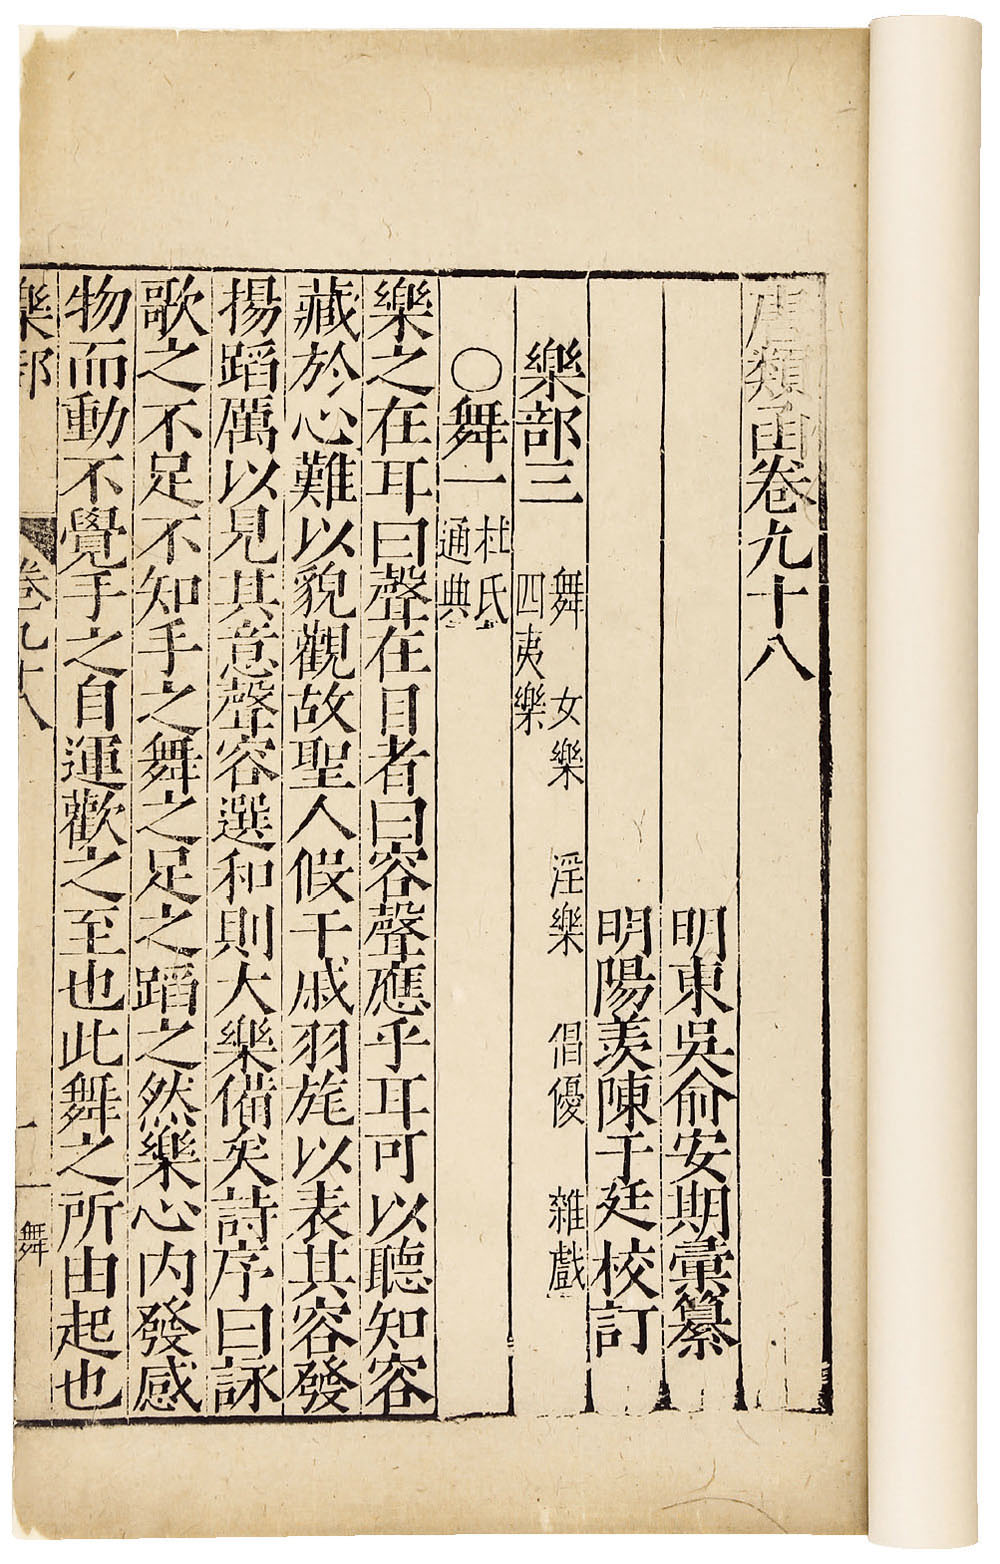 唐類函卷九十八
明東吳俞安期彙纂
明陽羨陳于廷校訂
樂部三
舞 女樂 淫樂 倡優 雜戲
四夷樂
〇舞一
杜氏
通典
樂之在耳曰聲在目者曰容聲應乎耳可以聽知容
藏於心難以貌觀故聖人假干戚羽旄以表其容發
揚蹈厲以見其意聲容選和則大樂備矣詩序曰詠
歌之不足不知手之舞之足之蹈之然樂心內發感
物而動不覺手之自運歡之至也此舞之所由起也
樂部 卷九十八 一 舞